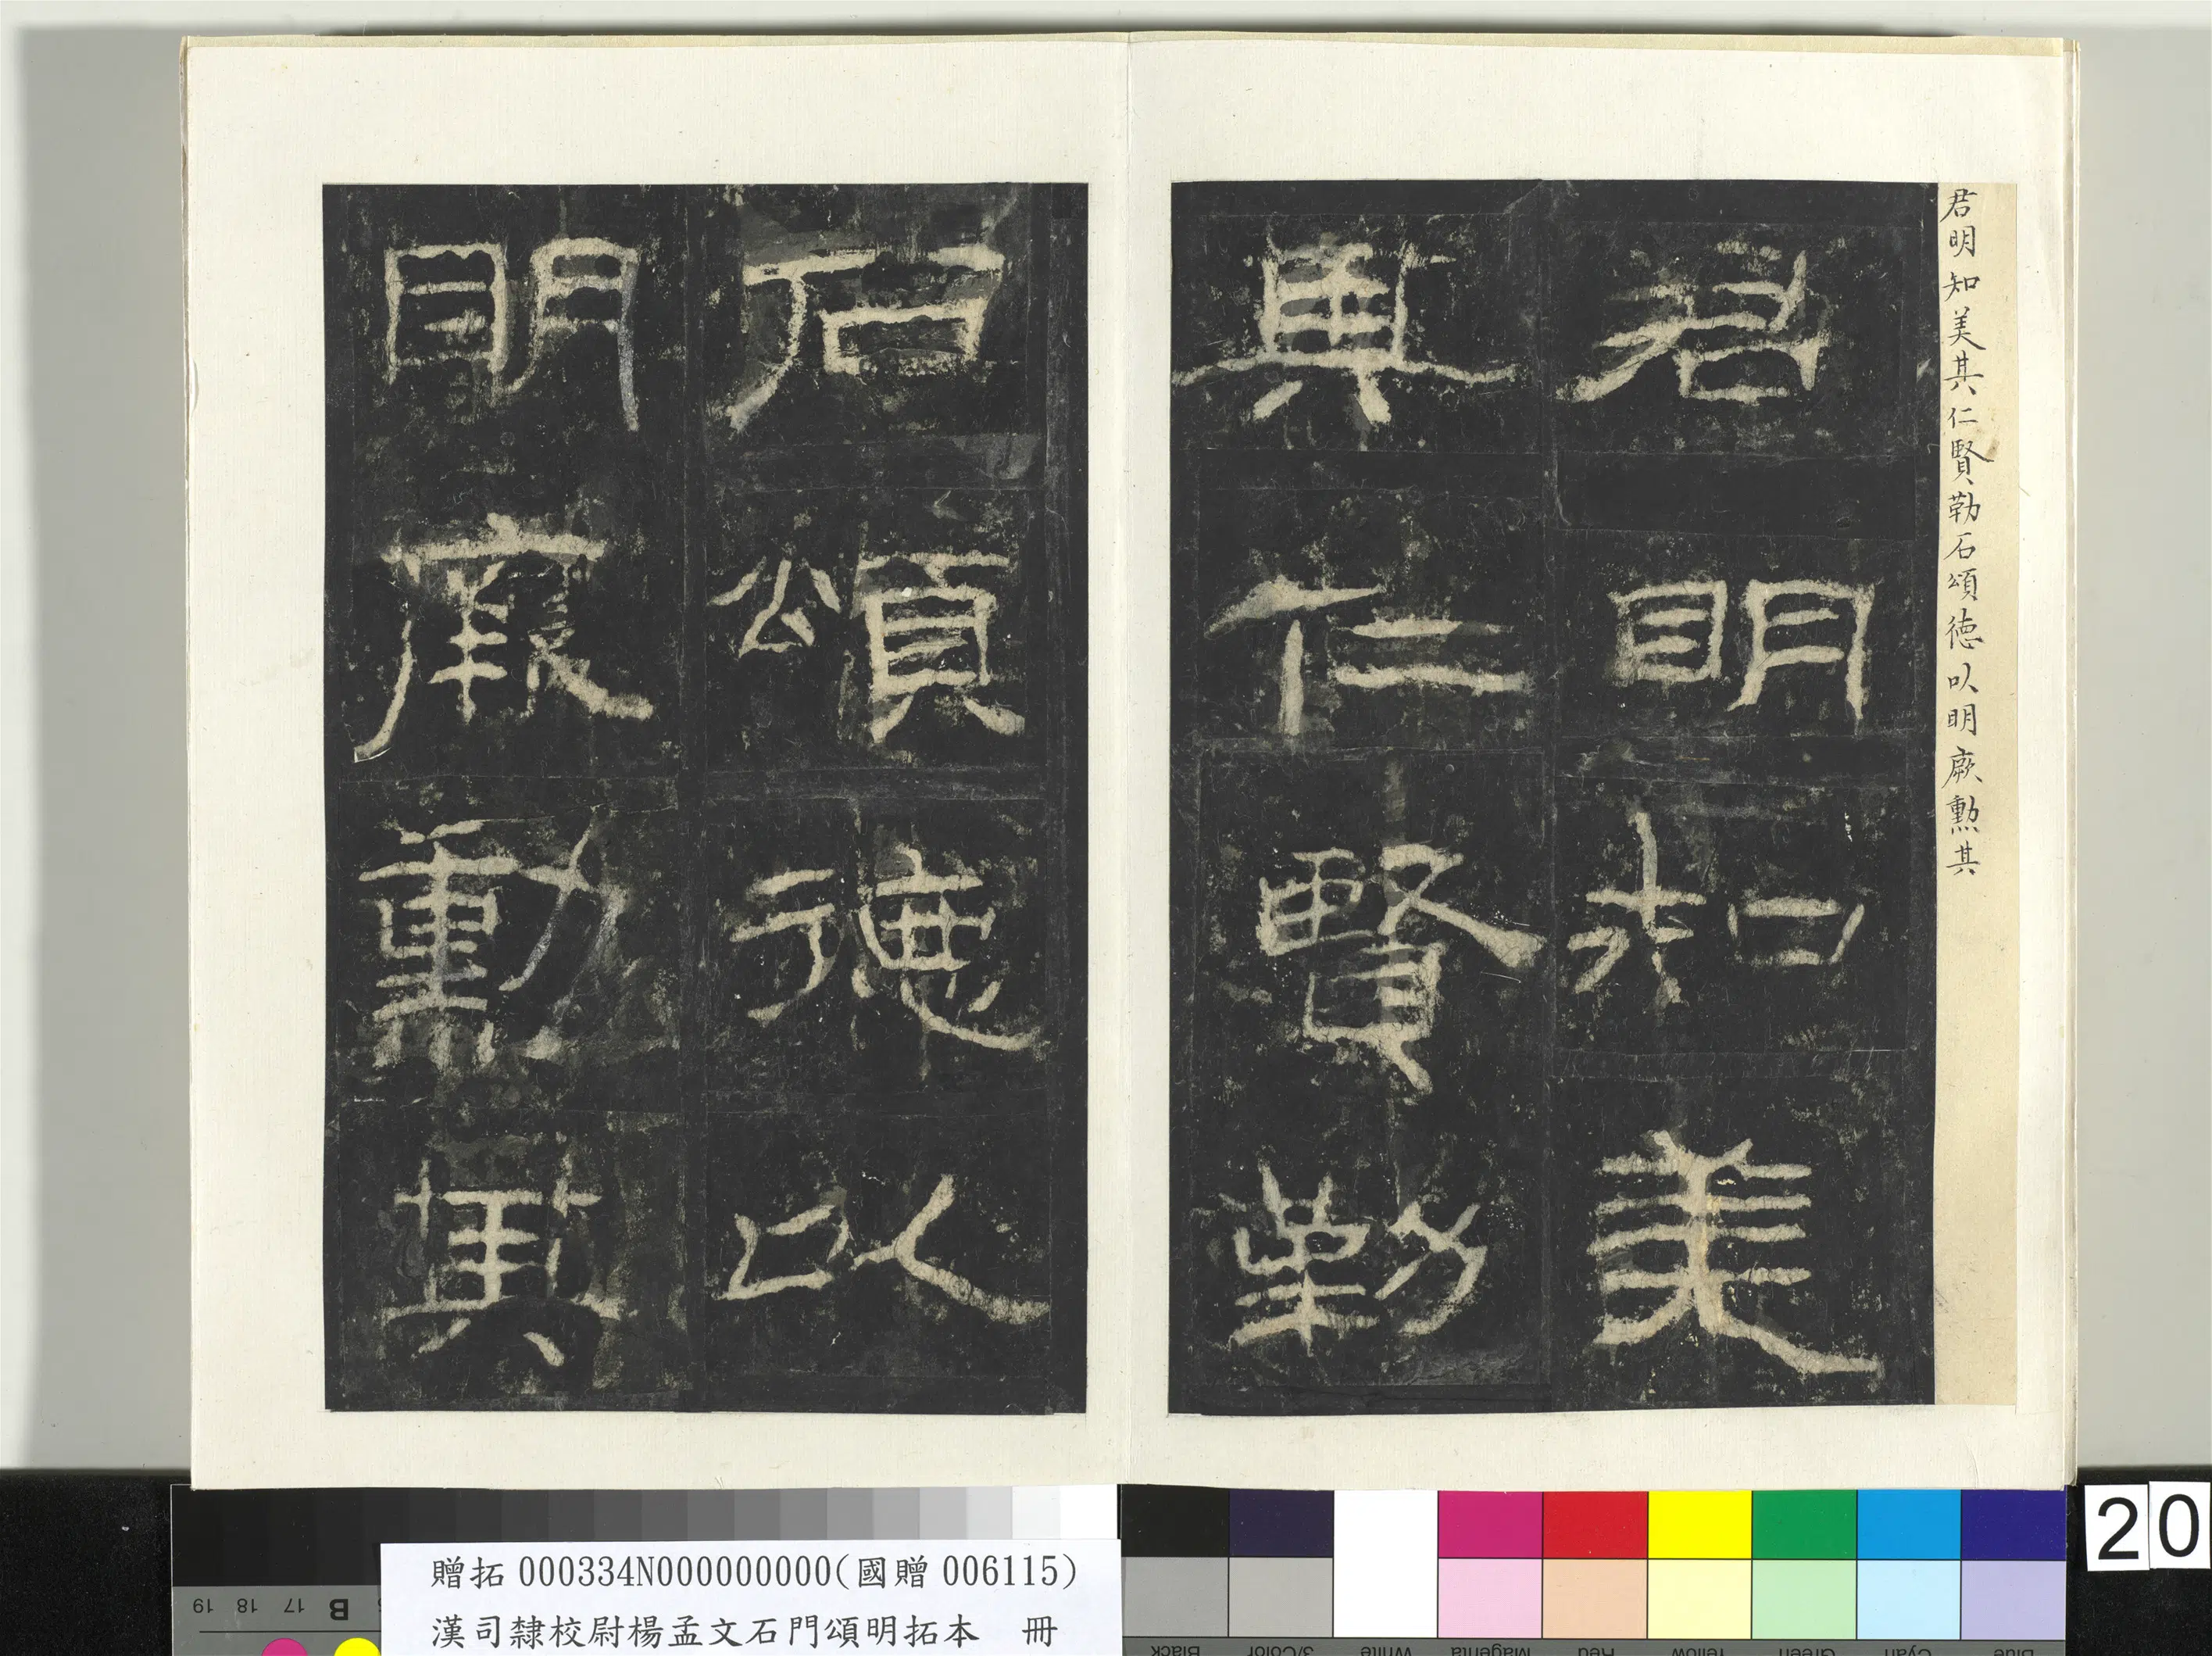 君明知美其仁賢勒石頌徳以明厥勲其
君明知美
其仁賢勒
石頌徳以
明厥勳其
贈拓000334N000000000(國贈006115)
漢司隸校尉楊孟文石門頌明拓本 冊
20
19 18 17 B
Black 3/Color White Magenta Red Yellow Green Cyan Blue